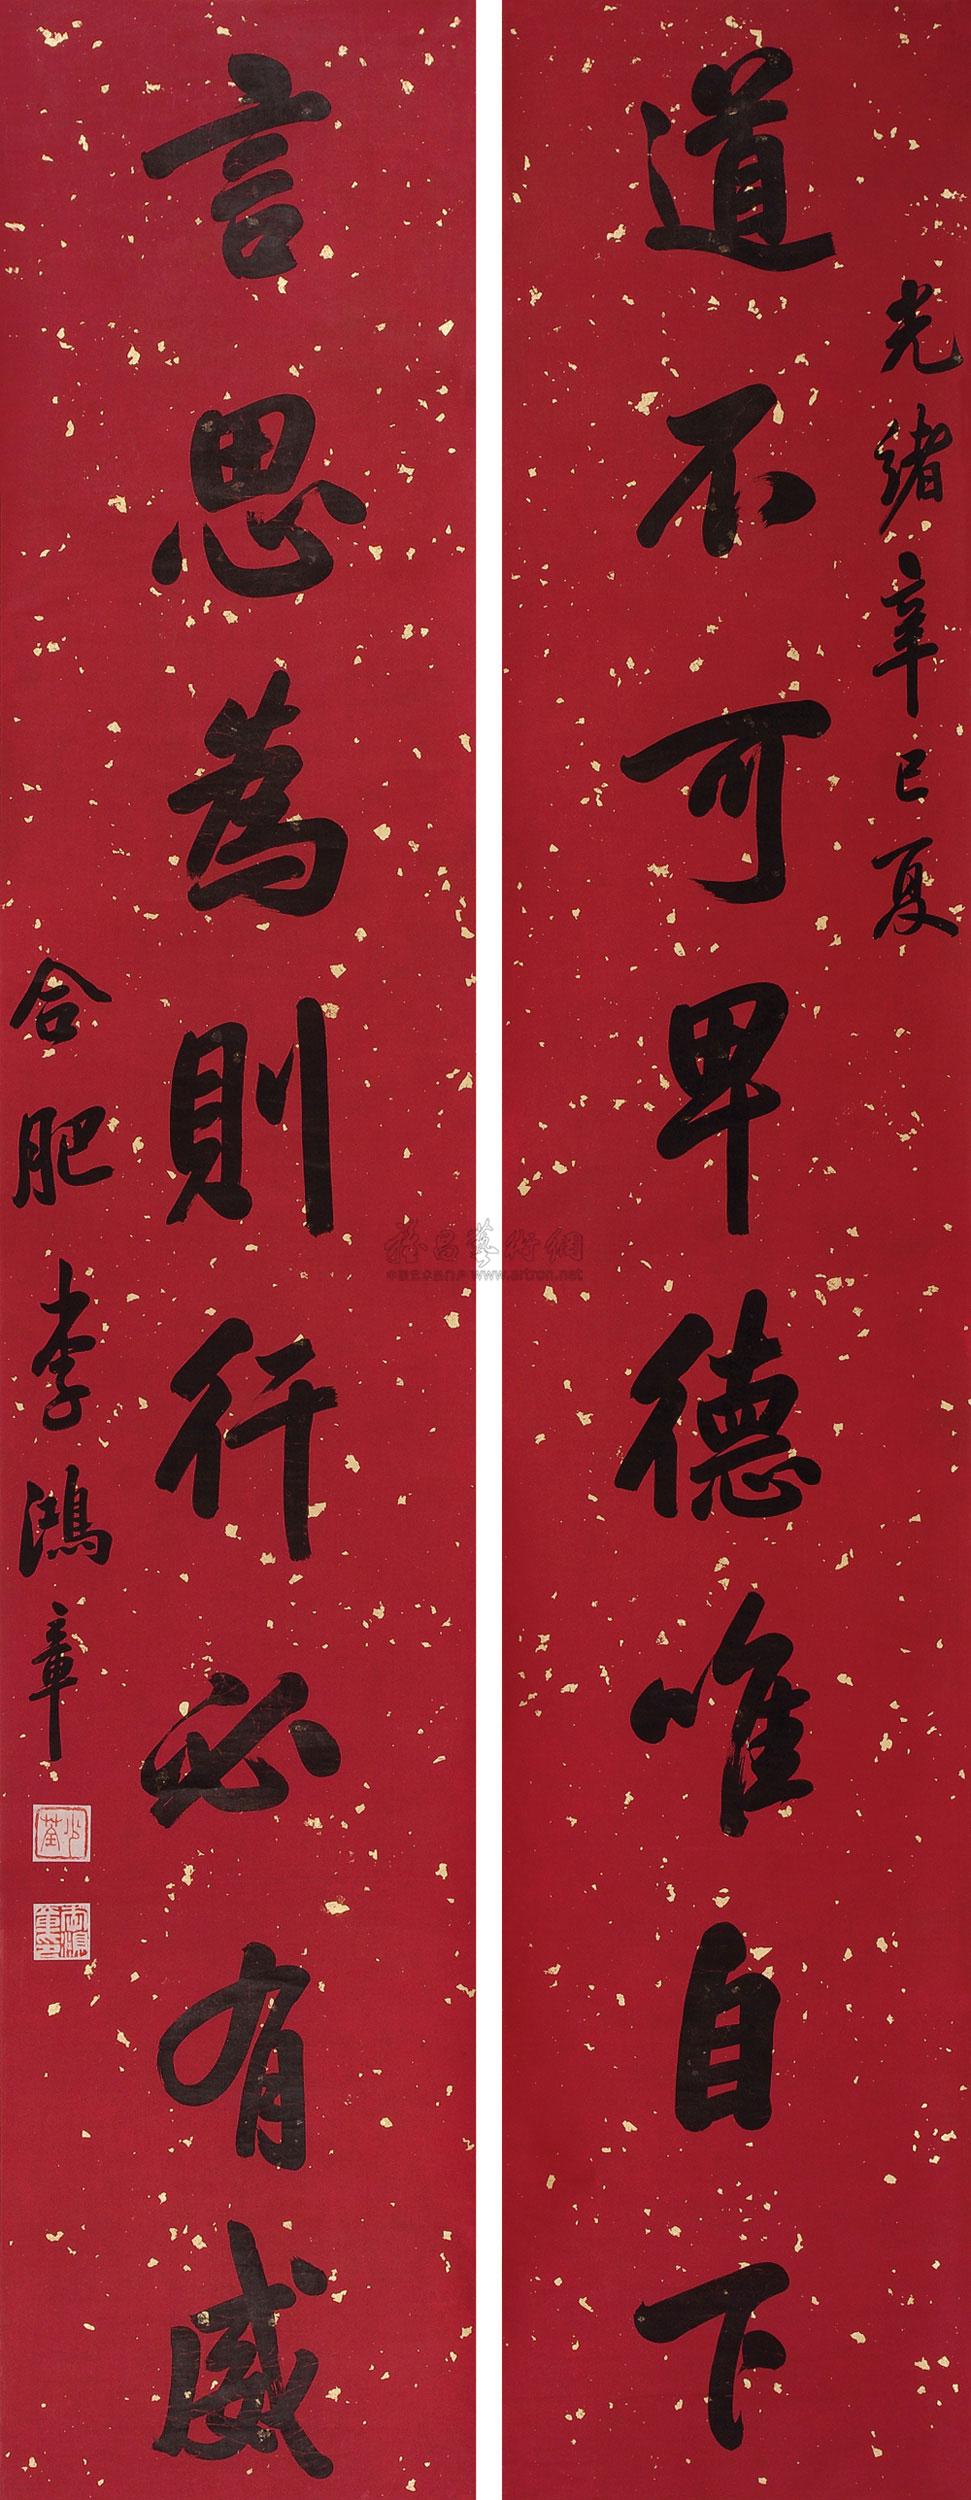 光緒辛巳夏
道不可卑德唯自下
言思為則行必有威
合肥李鴻章
少荃
雅昌藝術網
www.artron.net